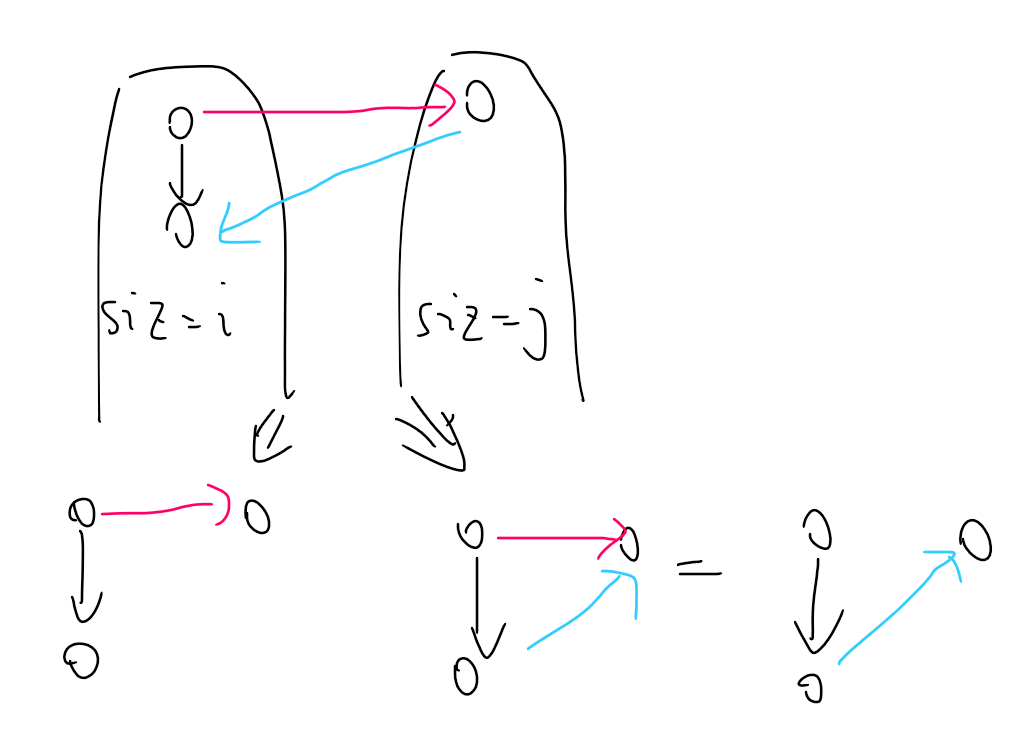 siz=i
siz=j
=